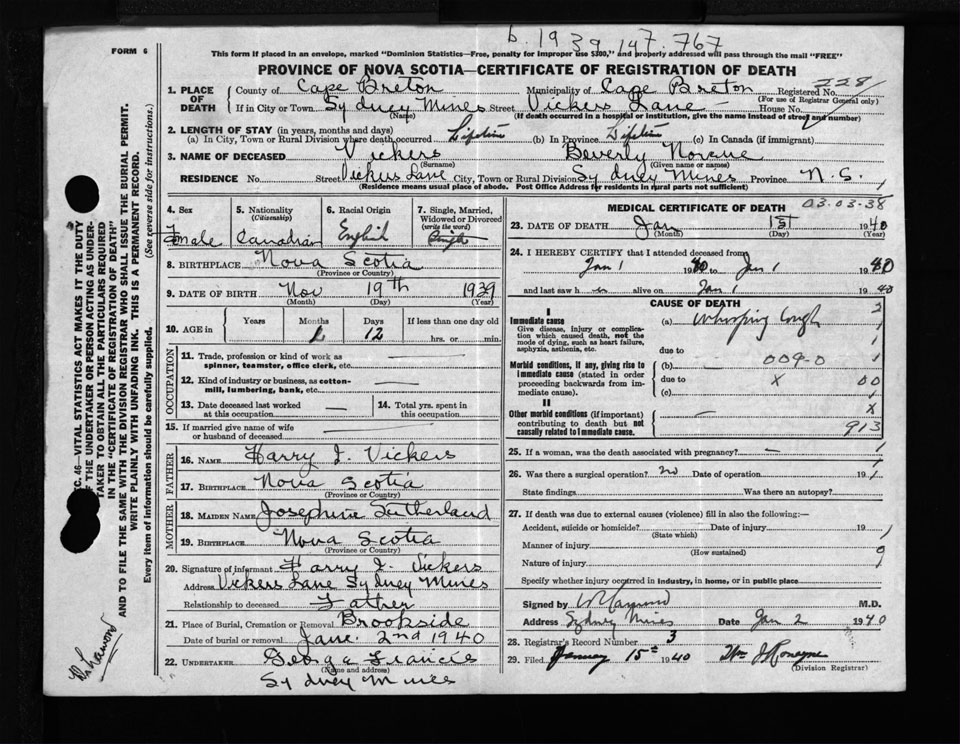 b. 1939 147 767
FORM 6
This form if placed in an envelope, marked "Dominion Statistics—Free, penalty for improper use $300," and properly addressed will pass through the mail "FREE"
PROVINCE OF NOVA SCOTIA—CERTIFICATE OF REGISTRATION OF DEATH
1. PLACE OF DEATH County of Cape Breton Municipality of Cape Breton Registered No. 228
(For use of Registrar General only)
If in City or Town Sydney Mines Street Vickers Lane House No.
(Name) (If death occurred in a hospital or institution, give the name instead of street and number)
2. LENGTH OF STAY (in years, months and days)
(a) In City, Town or Rural Division where death occurred Lifetime (b) In Province Lifetime (c) In Canada (if immigrant)
3. NAME OF DECEASED Vickers Beverly Norene
(Surname) (Given name or names)
RESIDENCE No. Street Vickers Lane City, Town or Rural Division Sydney Mines Province N.S.
(Residence means usual place of abode. Post Office Address for residents in rural parts not sufficient)
4. Sex Female
5. Nationality (Citizenship) Canadian
6. Racial Origin English
7. Single, Married, Widowed or Divorced (write the word) Single
8. BIRTHPLACE Nova Scotia
(Province or Country)
9. DATE OF BIRTH Nov 19th 1939
(Month) (Day) (Year)
10. AGE in Years Months 1 Days 12 If less than one day old hrs. or min.
OCCUPATION
11. Trade, profession or kind of work as spinner, teamster, office clerk, etc.
12. Kind of industry or business, as cotton-mill, lumbering, bank, etc.
13. Date deceased last worked at this occupation
14. Total yrs. spent in this occupation
15. If married give name of wife or husband of deceased
FATHER
16. NAME Harry I. Vickers
17. BIRTHPLACE Nova Scotia
(Province or Country)
MOTHER
18. MAIDEN NAME Josephine Sutherland
19. BIRTHPLACE Nova Scotia
(Province or Country)
20. Signature of informant Harry I. Vickers
Address Vickers Lane Sydney Mines
Relationship to deceased Father
21. Place of Burial, Cremation or Removal Brookside
Date of burial or removal Jan. 2nd 1940
22. UNDERTAKER George Francis
(Name and address)
Sydney Mines
MEDICAL CERTIFICATE OF DEATH 03-03-38
23. DATE OF DEATH Jan 1st 1940
(Month) (Day) (Year)
24. I HEREBY CERTIFY that I attended deceased from
Jan 1 1940 to Jan 1 1940
and last saw h alive on Jan 1 1940
CAUSE OF DEATH
I
Immediate cause (a) Whooping Cough 2
Give disease, injury or complication which caused death, not the mode of dying, such as heart failure, asphyxia, asthenia, etc.
due to 1
Morbid conditions, if any, giving rise to immediate cause (stated in order proceeding backwards from immediate cause).
(b) 009-0 1
due to X 00
(c) 1
II
Other morbid conditions (if important) contributing to death but not causally related to immediate cause. X
913
25. If a woman, was the death associated with pregnancy? 1
26. Was there a surgical operation? no Date of operation 19 1
State findings Was there an autopsy?
27. If death was due to external causes (violence) fill in also the following:—
Accident, suicide or homicide? Date of injury 19 1
(State which)
Manner of injury 9
(How sustained)
Nature of injury
Specify whether injury occurred in industry, in home, or in public place
Signed by M.D.
Address Sydney Mines Date Jan 2 1940
28. Registrar's Record Number 3
29. Filed January 15th 1940
(Division Registrar)
SEC. 46—VITAL STATISTICS ACT MAKES IT THE DUTY OF THE UNDERTAKER OR PERSON ACTING AS UNDERTAKER TO OBTAIN ALL THE PARTICULARS REQUIRED IN THE "CERTIFICATE OF REGISTRATION OF DEATH"
AND TO FILE THE SAME WITH THE DIVISION REGISTRAR WHO SHALL ISSUE THE BURIAL PERMIT.
WRITE PLAINLY WITH UNFADING INK. THIS IS A PERMANENT RECORD.
Every item of information should be carefully supplied. (See reverse side for instructions.)